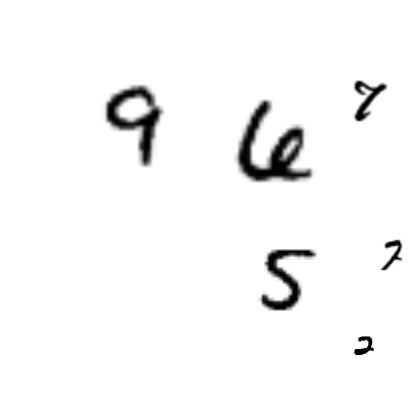 9 6 7
5 7
2